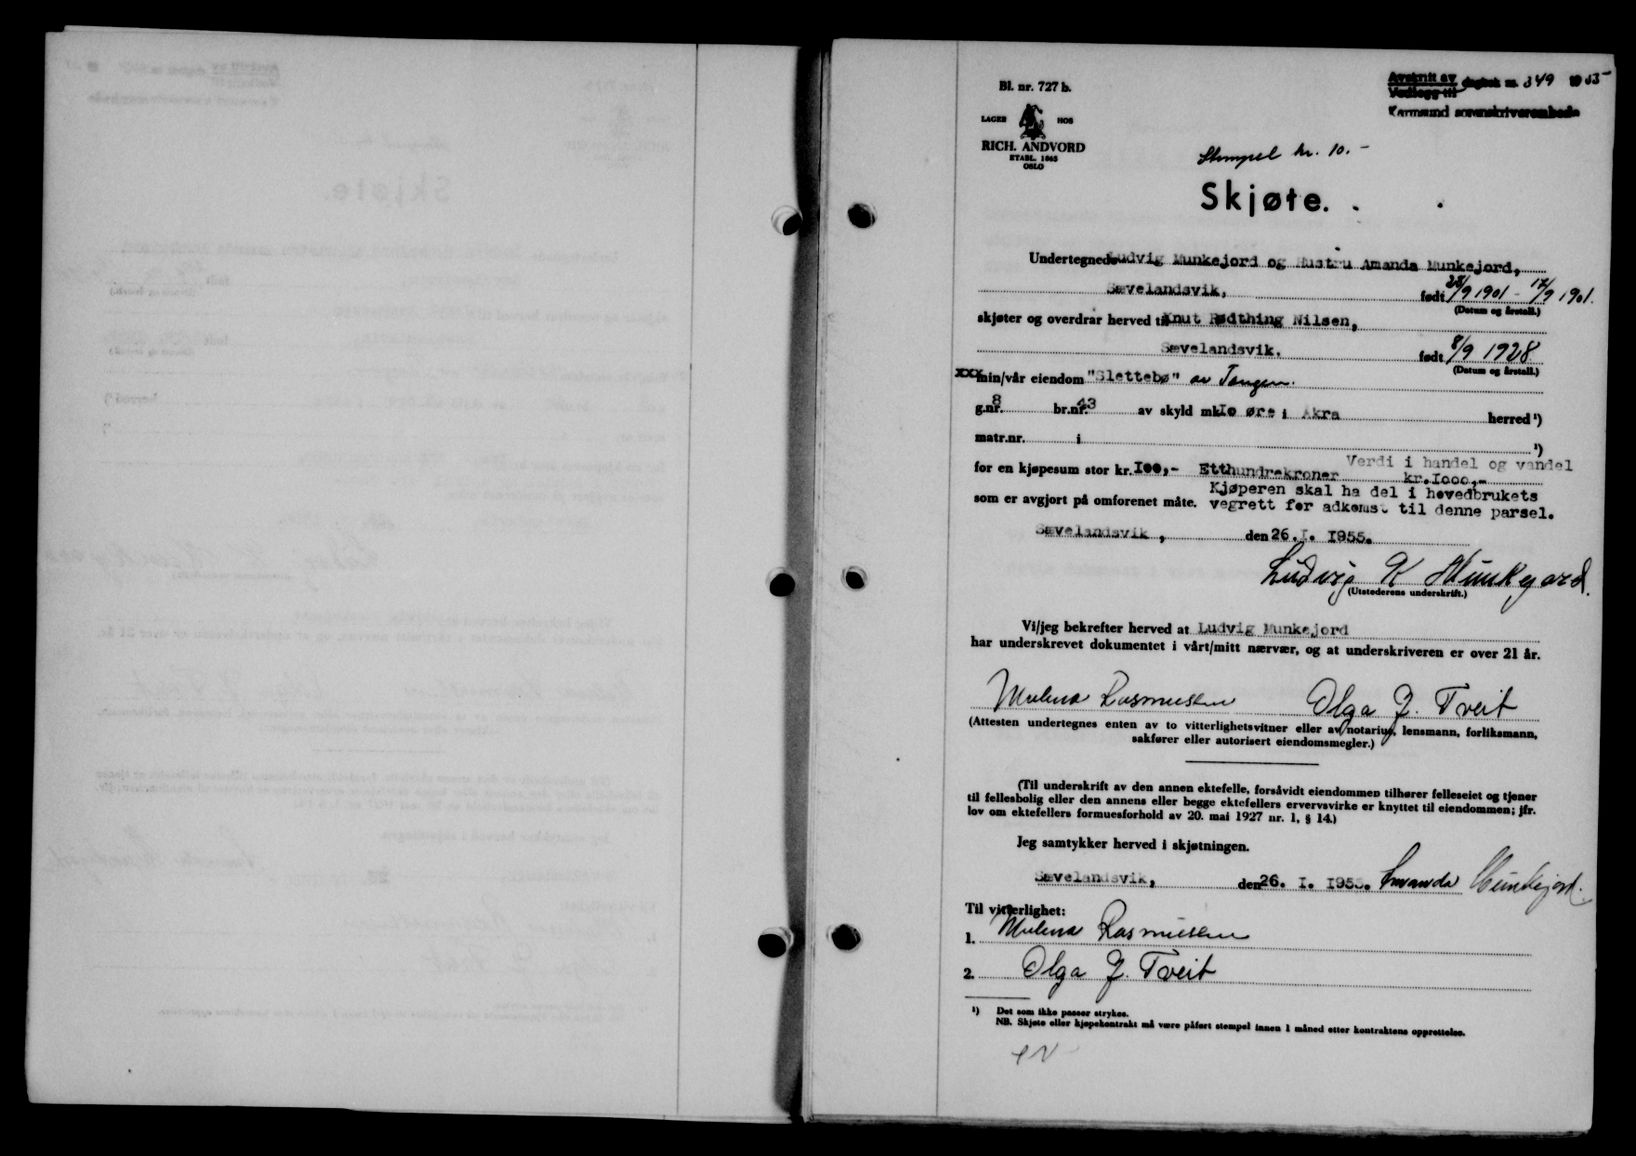 Bl. nr. 727 b.
LAGER HOS
RICH. ANDVORD
ETABL. 1865
OSLO
Avskrift av dagbok nr. 349 1955
Vedlegg til
Karmsund sorenskriverembede
Stempel kr. 10.-
Skjøte.
Undertegnede Ludvig Munkejord og Hustru Amanda Munkejord,
Sævelandsvik, født 28/9 1901 - 12/9 1901.
(Datum og årstall.)
skjøter og overdrar herved til Knut Rødthing Nilsen,
Sævelandsvik. født 8/9 1928
(Datum og årstall.)
xxx min/vår eiendom "Slettebø" av Tangen.
g.nr. 8 br.nr. 43 av skyld mk. Io øre i Åkra herred ¹)
matr.nr. i ¹)
for en kjøpesum stor kr. Ioo,- Etthundrekroner Verdi i handel og vandel kr.Iooo,-
som er avgjort på omforenet måte. Kjøperen skal ha del i hovedbrukets
vegrett for adkomst til denne parsel.
Sævelandsvik, den 26. I. I955.
Ludvig K Munkejord.
(Utstederens underskrift.)
Vi/jeg bekrefter herved at Ludvig Munkejord
har underskrevet dokumentet i vårt/mitt nærvær, og at underskriveren er over 21 år.
Rasmussen Olga J. Tveit
(Attesten undertegnes enten av to vitterlighetsvitner eller av notarius, lensmann, forliksmann,
sakfører eller autorisert eiendomsmegler.)
(Til underskrift av den annen ektefelle, forsåvidt eiendommen tilhører felleseiet og tjener
til fellesbolig eller den annens eller begge ektefellers ervervsvirke er knyttet til eiendommen; jfr.
lov om ektefellers formuesforhold av 20. mai 1927 nr. 1, § 14.)
Jeg samtykker herved i skjøtningen.
Sævelandsvik, den 26. I. I955. Amanda Munkejord.
Til vitterlighet:
1. Rasmussen
2. Olga J. Tveit
¹) Det som ikke passer strykes.
NB. Skjøte eller kjøpekontrakt må være påført stempel innen 1 måned etter kontraktens opprettelse.